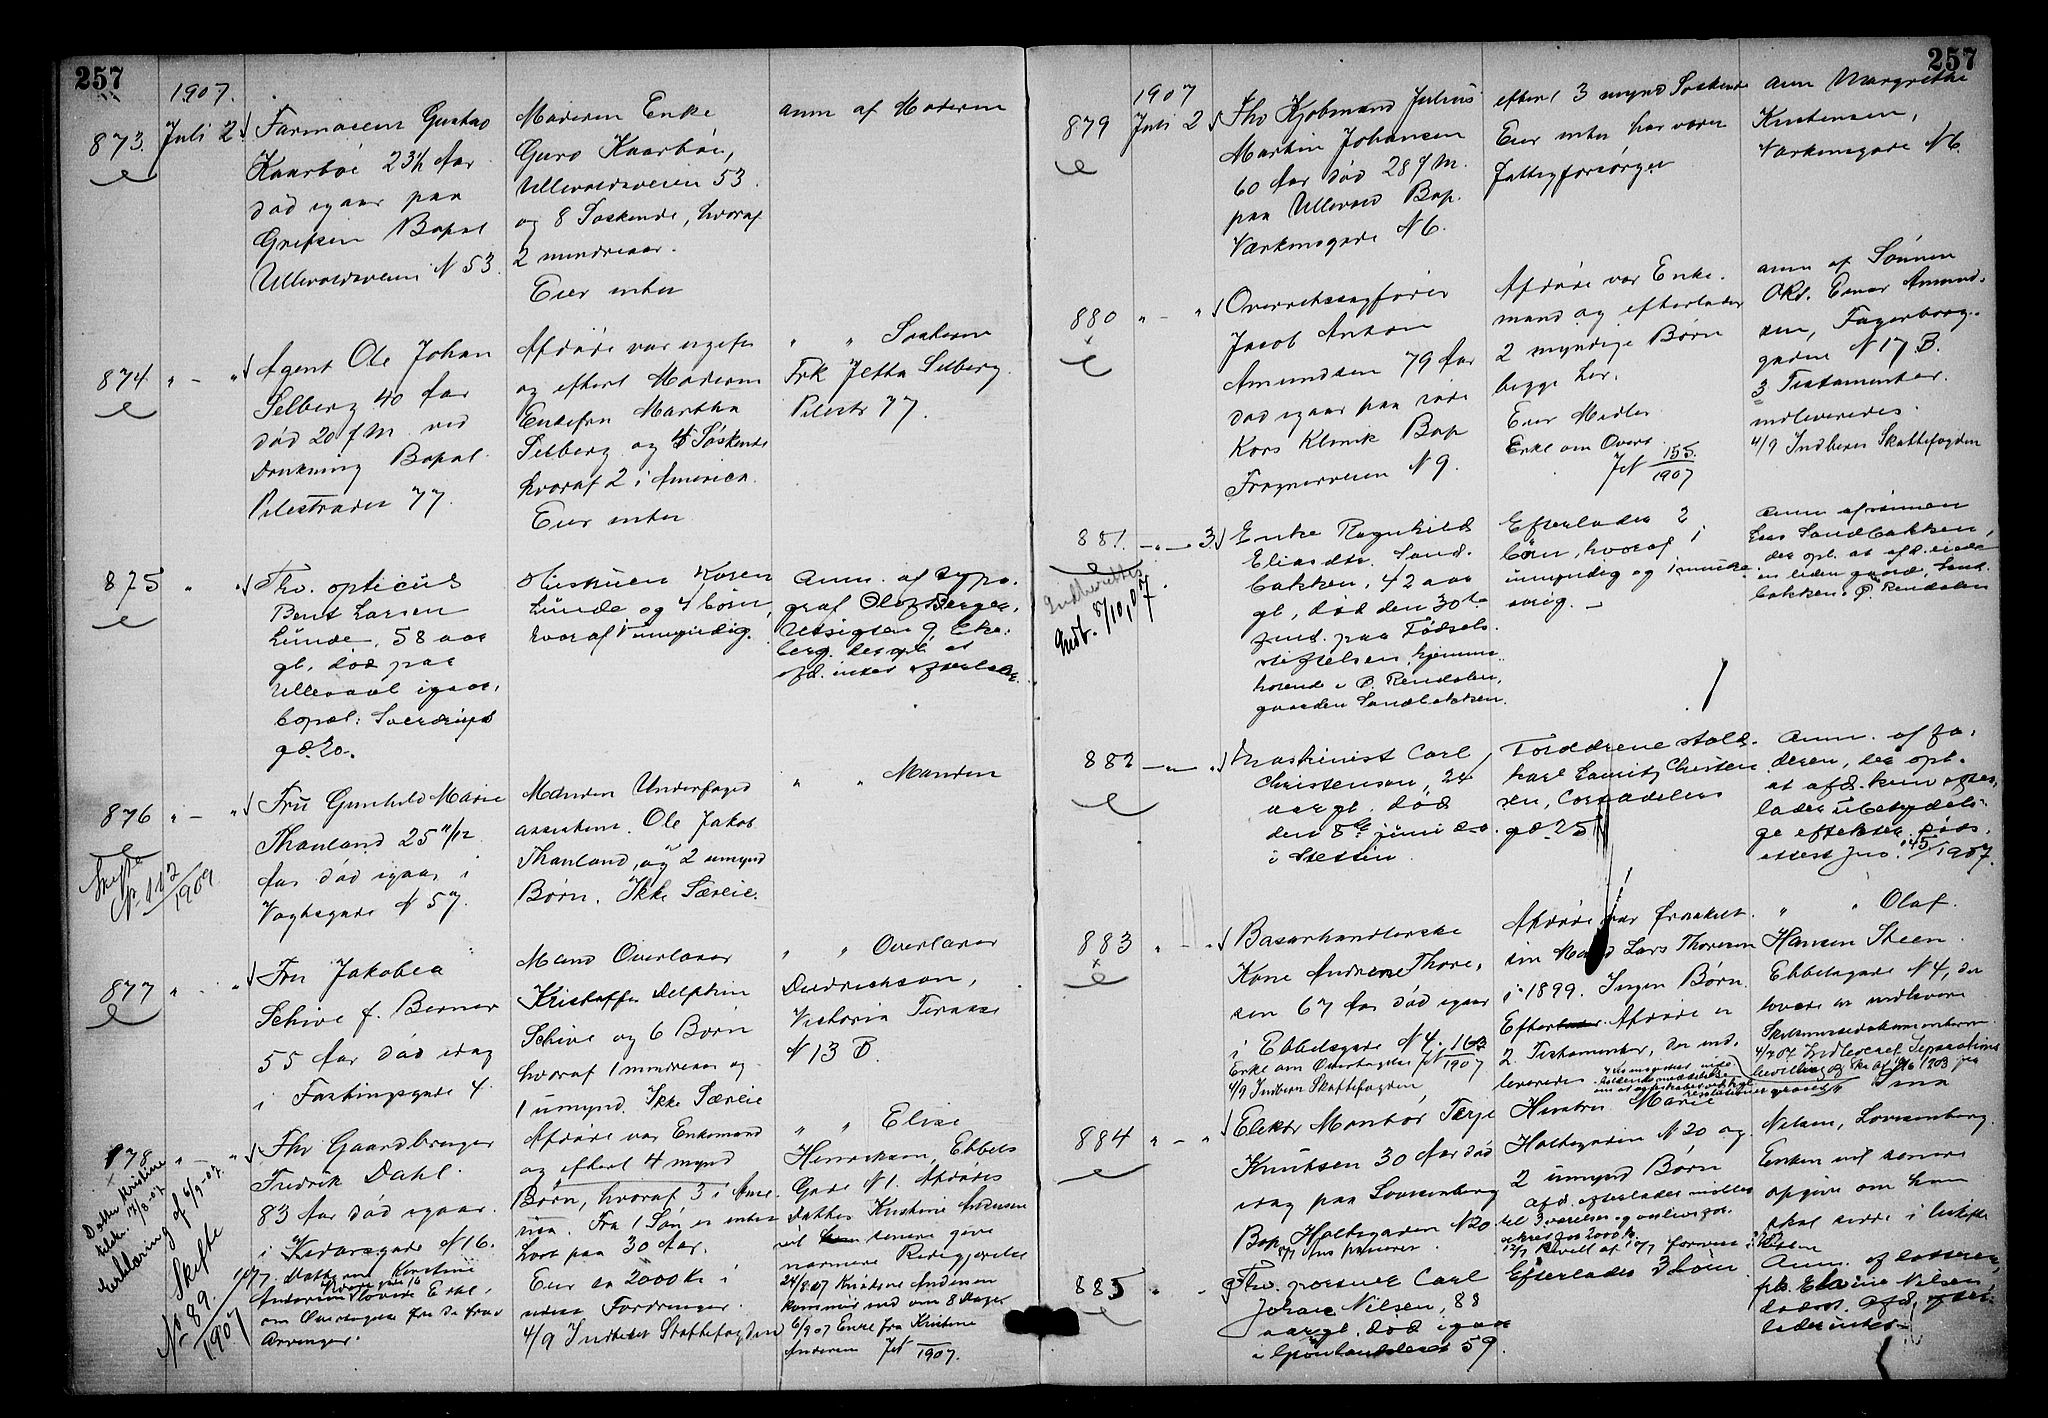 257
1907.
873. Juli 2.
Farmaceut Gustav
Kaarbøe 23½ Aar
død igaar paa
Grefsen Bopæl
Ullevoldsveien N 53.
Moderen Enke
Guro Kaarbøe,
Ullevoldsveien 53.
og 8 Søskende, hvoraf
2 mindreaar.
Eier intet
anm af Moderen
874 " - "
Agent Ole Johan
Selberg 40 Aar
død 20 f M. ved
Drukning Bopæl
Pilestrædet 77.
Afdøde var ugift
og efterl Moderen
Enkefru Martha
Selberg og 4 Søskende
hvoraf 2 i America.
Eier intet
" " Søsteren
Frk Jetta Selberg.
Pilestr 77.
875 " "
Fhv. opticus
Bent Larsen
Lunde, 58 aar
gl., død paa
Ullevaal igaar,
bopæl: Sverdrups
gd. 20.
Hustruen Karen
Lunde og 4 børn,
hvoraf 1 umyndig.
Anm. af typo-
graf Olaf Berger,
Utsigten 9, Eke-
berg, der opl. at
afd. intet efterlader.
876 " - "
Skifte
N. 112/1909
Fru Gunhild Marie
Thauland 25 11/12
Aar død igaar i
Vogtsgade N 57.
Manden Underfoged
assistent Ole Jakob
Thauland, og 2 umynd
Børn. Ikke Særeie.
" " Manden
877 " - "
Fru Jakobea
Schive f. Berner
55 Aar død idag
i Fastingsgade 4.
Mand Overlærer
Kristoffer Delphin
Schive og 6 Børn
hvoraf 1 mindreaar og
1 umynd. Ikke Særeie
" " Overlærer
Diedrichson,
Victoria Terasse
N 13 B.
878 " - "
Datter Kristine
erklæring af 6/9-07.
Skifte
No 89./1907
Fhv Gaardbruger
Fredrik Dahl.
83 Aar død igaar.
i N 16.
Andersen lovede Erkl.
om Overtagelse fra de øvr
Arvinger.
Afdøde var Enkemand
og efterl 4 mynd
Børn, hvoraf 3 i Ame
rica. Fra 1 Søn er intet
hørt paa 30 Aar.
Eier ca 2000 Kr i
udest Fordringer.
4/9 Indberet Skattefogden
" " Elise
Henriksen, Ebbels
Gade N 1. Afdødes
Datter Kristine Andersen
vil senere give
nærmere Redegjørelse
24/8 07 Kristine Andersen
kommer ind om 8 Dage
6/9 07 Erkl fra Kristine
Andersen JN /1907.
257
1907
879 Juli 2
Fhv Kjøbmand Julius
Martin Johansen
60 Aar død 28 f M.
paa Ullevold Bop.
Værkensgade N 6.
efterl 3 mynd Søskende
Eier intet har været
fattigforsørget
anm Margrethe
Kristensen,
Værkensgade N 6
880 " - "
Overretssagfører
Jacob Anton
Amundsen 79 Aar
død igaar paa røde
Kors Klinik Bop
Frognerveien N 9.
Afdøde var Enke-
mand og efterlader
2 myndige Børn
begge her.
Eier Midler
Erkl om Overt
JN 155./1907
anm af Sønnen
Einar Amund-
sen, Fagerborg-
gaden N 17 B.
3 Testamenter
indleveredes.
4/9 Indberet Skattefogden
881. -"- 3.
Indberettet
Indb. 8/10, 07
Enke Ragnhild
Eliasdtr. Sand-
bakken, 42 aar
gl., død den 30te
juni paa Fødsels-
stiftelsen, hjemme-
hørende i Ø. Rendalen,
gaarden Sandbakken.
Efterlader 2
børn, hvoraf 1
umyndig og 1 mindre-
aarig.
Anm af sønnen
Lars Sandbakken,
der opl. at afd. eiede
en liden gaard, Sand-
bakken i Ø. Rendalen
882 -"- "
Maskinist Carl
Christensen, 24
aar gl. død
den 8de juni d.a.
i Stettin.
Forældrene stald-
karl Lauritz Christen
sen,
gd. 25
Anm. af fa-
deren, der opl.
at afd. kun efter-
lader ubetydeli-
ge effekter. Døds-
attest Jno. 145/1907.
883 " - "
Basarhandlerske
Kone Andrine Thore-
sen 67 Aar død igaar
i Ebbelsgade N 4.
Erkl om Overtagelse JN 163/1907
4/9 Indberet Skattefogden
Afdøde var fraskilt
sin Mand Lars Thoresen
i 1899. Ingen Børn.
Afdøde er
2 Testamenter, der ind-
leveredes
" " Olaf
Hansen Steen
Ebbelsgade N 4, der
lovede at indlevere
Skilsmissedokumenterne
4/7 07 Indleveret Separations
bevilling
884 " - "
Elektr Montør Terje
Knutsen 30 Aar død
idag paa Lovisenberg
Bop. Holtegaden N 20
Hustru Marie
Holtegaden N 20 og
2 umynd Børn
Afd. efterlader møbler
til 3 værelser
Nilsen, Lovisenberg.
Enken vil senere
opgive om hun
skal sidde i uskifte
885 " "
Fhv. Carl
Johan Nilsen, 88
aar gl. død igaar
i Grønlandsleret 59.
Efterlader 3 børn
Anm. af datteren,
frk. Elvine Nilsen,
sammest. Afd. efter-
lader intet